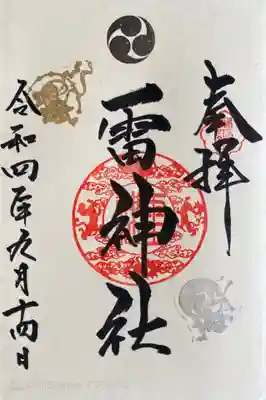 奉拝
一雷神社
令和四年九月十四日